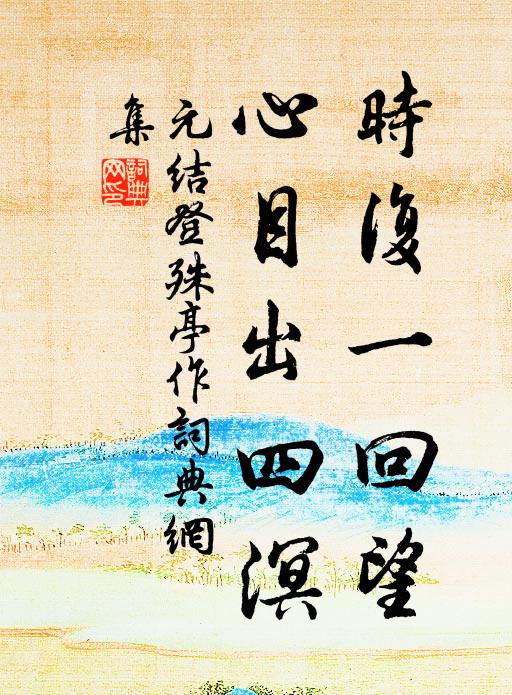 時復一回望
心目出四溟
元结登殊亭作詞典網
集
詞典網印